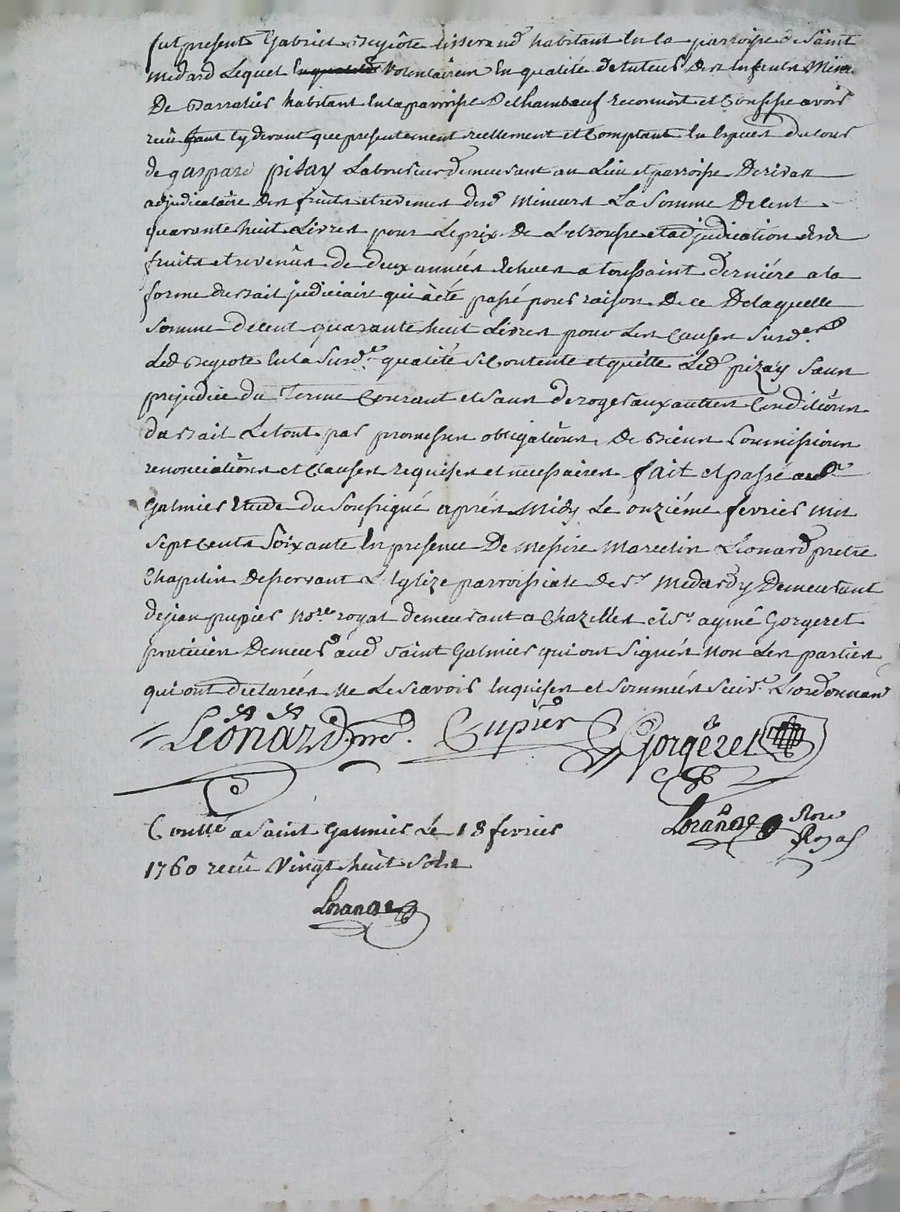 fut present Gabriel Bégiôte tisserand habitant en la parroisse de Saint
Medard Lequel volontairemt en qualité de tuteur des enfents Mineurs
De habitant en la parroisse De Chambœuf reconnoit et Confesse avoir
reçu tant cy devant que presentement reellement et Comptant en especes du cour
de gaspard pisay Laboureur demeurant au Lieu et parroisse De rivas
adjudicataire des fruits et revenus desd Mineurs La Somme De Cent
quarante huit Livres pour Le prix De L'etrousse et adjudication desd
fruits et revenus de deux années Echues a toussaint derniére a la
forme du Bail judiciaire qui à été passé pour raison De ce De laquelle
Somme de Cent quarante huit Livres pour Les Causes Susd.es
Led Begiote en la Susd.e qualité se Contente et quitte Led pizay Sans
prejudice du Terme Courant et Sans deroger aux autres Conditions
du Bail Le tout par promesses obligations De Biens Soumissions
renonciations et Clauses requises et necessaires fait et passé au St
Galmier Etude du Soussigné aprés Midy Le onziéme fevrier mil
Sept Cents Soixante En presence De Messire Marcelin Léonard pretre
Chapelin desservant L'Eglize parroissiale de St Medard y Demeurant
de jean pupier no.re royal demeurant a Chazelles et Sr aymé Gorgeret
praticien Demeur.t aud Saint Galmier qui ont Signés Non Les parties
qui ont declarées ne Le Scavoir Enquises et Sommées Suiv.t L'ordonnance
Léonard ptre. Pupier Gorgeret
Lorande Nore
Royal
Conllé a Saint Galmier Le 18 fevrier
1760 reçu Vingt huit Sols
Lorande